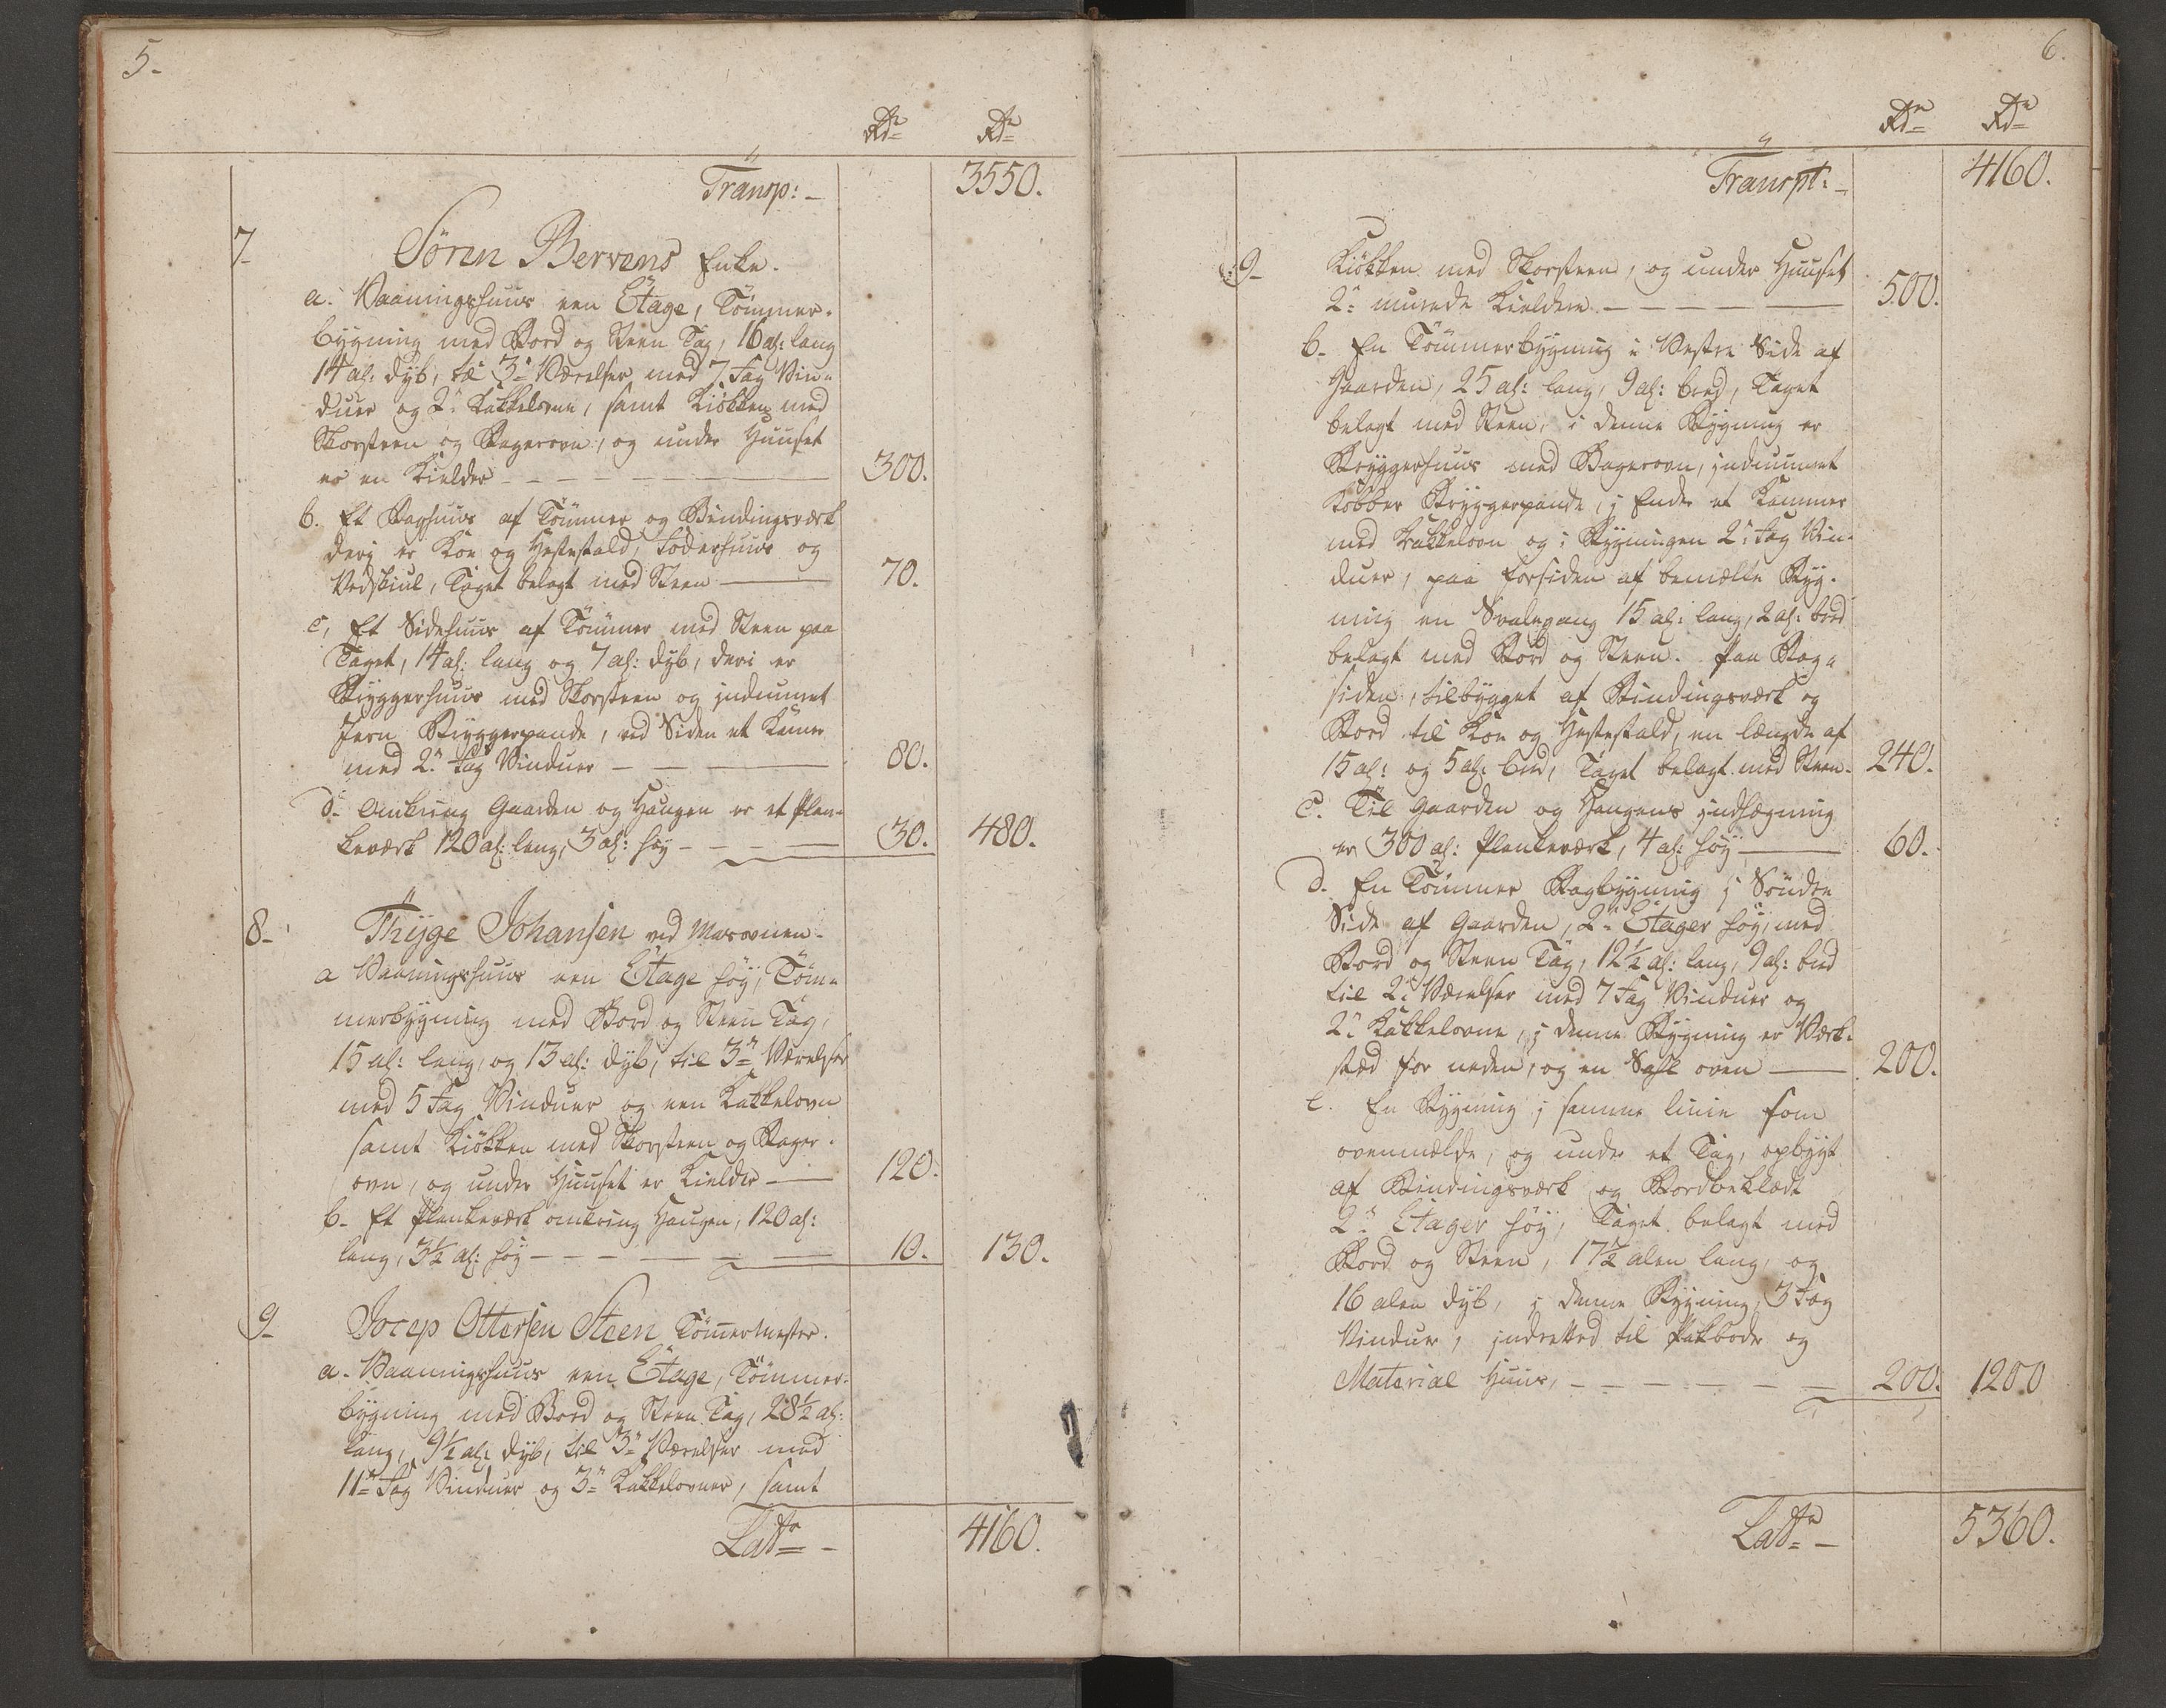 5.
Rdr Rdr
Transp: 3550.
7. Sören Bervens Enke.
a. Vaaningshuus een Etage, Tömmer-
bygning med Bord og Steen Tag, 16 al: lang
14 al: dyb, til 3de Værelser med 7 Fag Vin-
duer og 2de Kakkelovne, samt Kiökken med
Skorsteen og Bagerovn, og under Huuset
er en Kielder 300.
b. Et Baghuus af Tömmer og Bindingsværk
deri er Koe og Hestestald, Foderhuus og
Vedskiul, Taget belagt med Steen 70.
c, Et Sidehuus af Tömmer med Steen paa
Taget, 14 al: lang og 7 al: dyb, deri er
Bryggerhuus med Skorsteen og indmuuret
Jern Bryggerpande, ved Siden et Kamer
med 2de Fag Vinduer 80.
d. Omkring Gaarden og Haugen er et Plan-
keværk 120 al: lang, 3 al: höy 30. 480.
8. Thyge Johansen ved Masovnen.
a Vaaningshuus een Etage höy, Töm-
merbygning med Bord og Steen Tag,
15 al: lang, og 13 al: dyb, til 3de Værelser
med 5 Fag Vinduer og een Kakkelovn
samt Kiökken med Skorsteen og Bager-
ovn, og under Huuset er Kielder 120.
b. Et Plankeværk omkring Haugen, 120 al:
lang, 3½ al: höy 10. 130.
9. Jocep Ottersen Steen Tömermester.
a. Vaaningshuus een Etage, Tömmer-
bygning med Bord og Steen Tag, 28½ al:
lang, 9½ al: dyb, til 3de Værelser med
11 Fag Vinduer og 3de Kakkelovner, samt
Latr 4160.
6.
Rdr Rdr
Transpt: 4160.
9. Kiökken med Skorsteen, og under Huuset
2de murede Kieldere 500.
b. En Tömmerbygning i Vestre Side af
Gaarden, 25 al: lang, 9 al: bred, Taget
belagt med Steen, i denne Bygning er
Bryggerhuus med Bagerovn, indmuuret
Kobber Bryggerpande, i Ende et Kammer
med Kakkelovn og i Bygningen 2de Fag Vin-
duer, paa Forsiden af bemælte Byg-
ning en Svalegang 15 al: lang, 2 al: bred
belagt med Bord og Steen. Paa Bag-
siden, tilbygget af Bindingsværk og
Bord til Koe og Hestestald, en længde af
15 al: og 5 al: bred, Taget belagt med Steen. 240.
c. Til Gaarden og Haugens indhægning
er 300 al: Plankeværk, 4 al: höy 60.
d. En Tömmer Bagbygning i Söndre
Side af Gaarden, 2de Etager höy, med
Bord og Steen Tag, 12½ al: lang, 9 al: bred
til 2de Værelser med 7 Fag Vinduer og
2de Kakkelovne, i denne Bygning er Værk-
sted for neden, og en Sahl oven 200.
e. En Bygning i samme linie som
ovenmelde, og under et Tag, opbygt
af Bindingsværk og Bordbeklædt
2de Etager höy, Taget belagt med
Bord og Steen, 17½ alen lang, og
16 alen dyb, i denne Bygning 3 Fag
Vinduer, indrettet til Pakboder og
Material Huus, 200. 1200
Latr 5360.